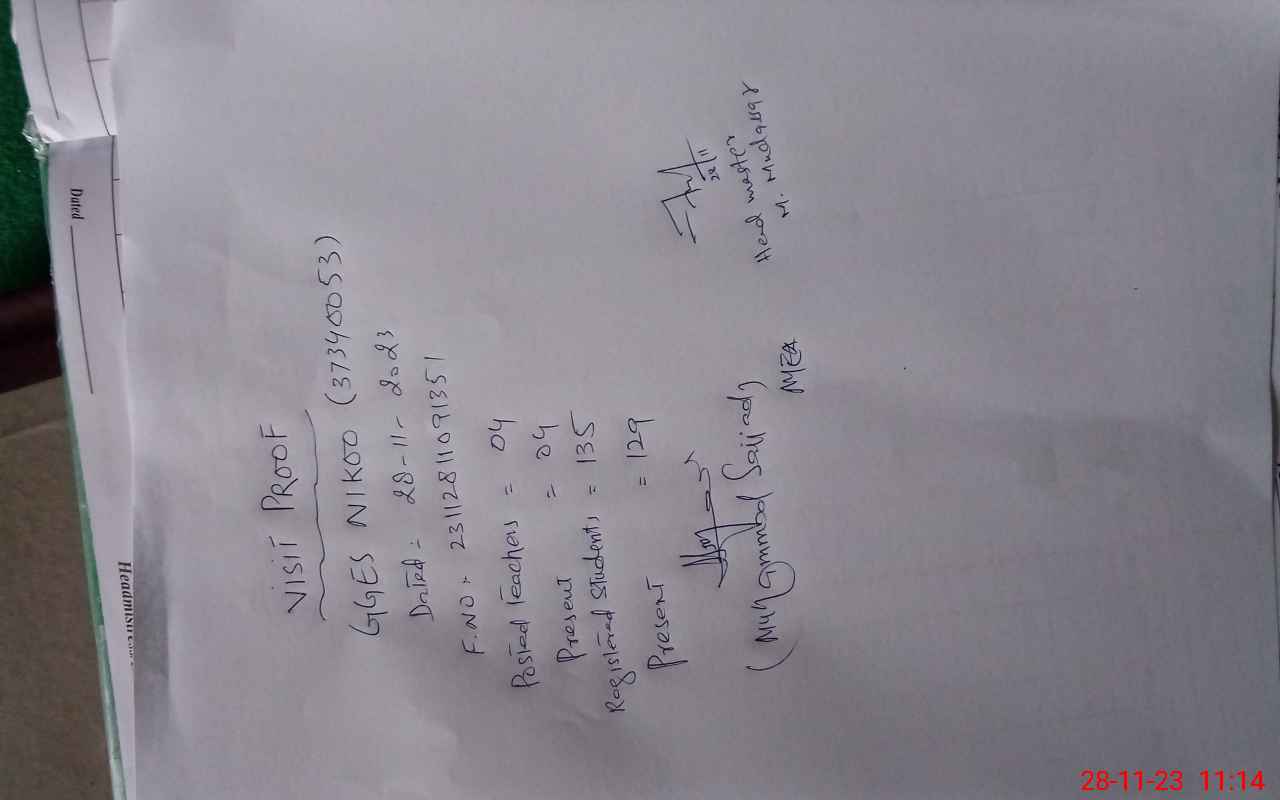 VISIT PROOF
GGES NIKOO (37340053)
Dated = 28-11-2023
F.NO = 23112811091351
Posted Teachers = 04
Present = 04
Registered Students = 135
Present = 129
(Muhammad Sajjad)
MEA
28/11
Head master
M. Mudassar
Dated
28-11-23 11:14